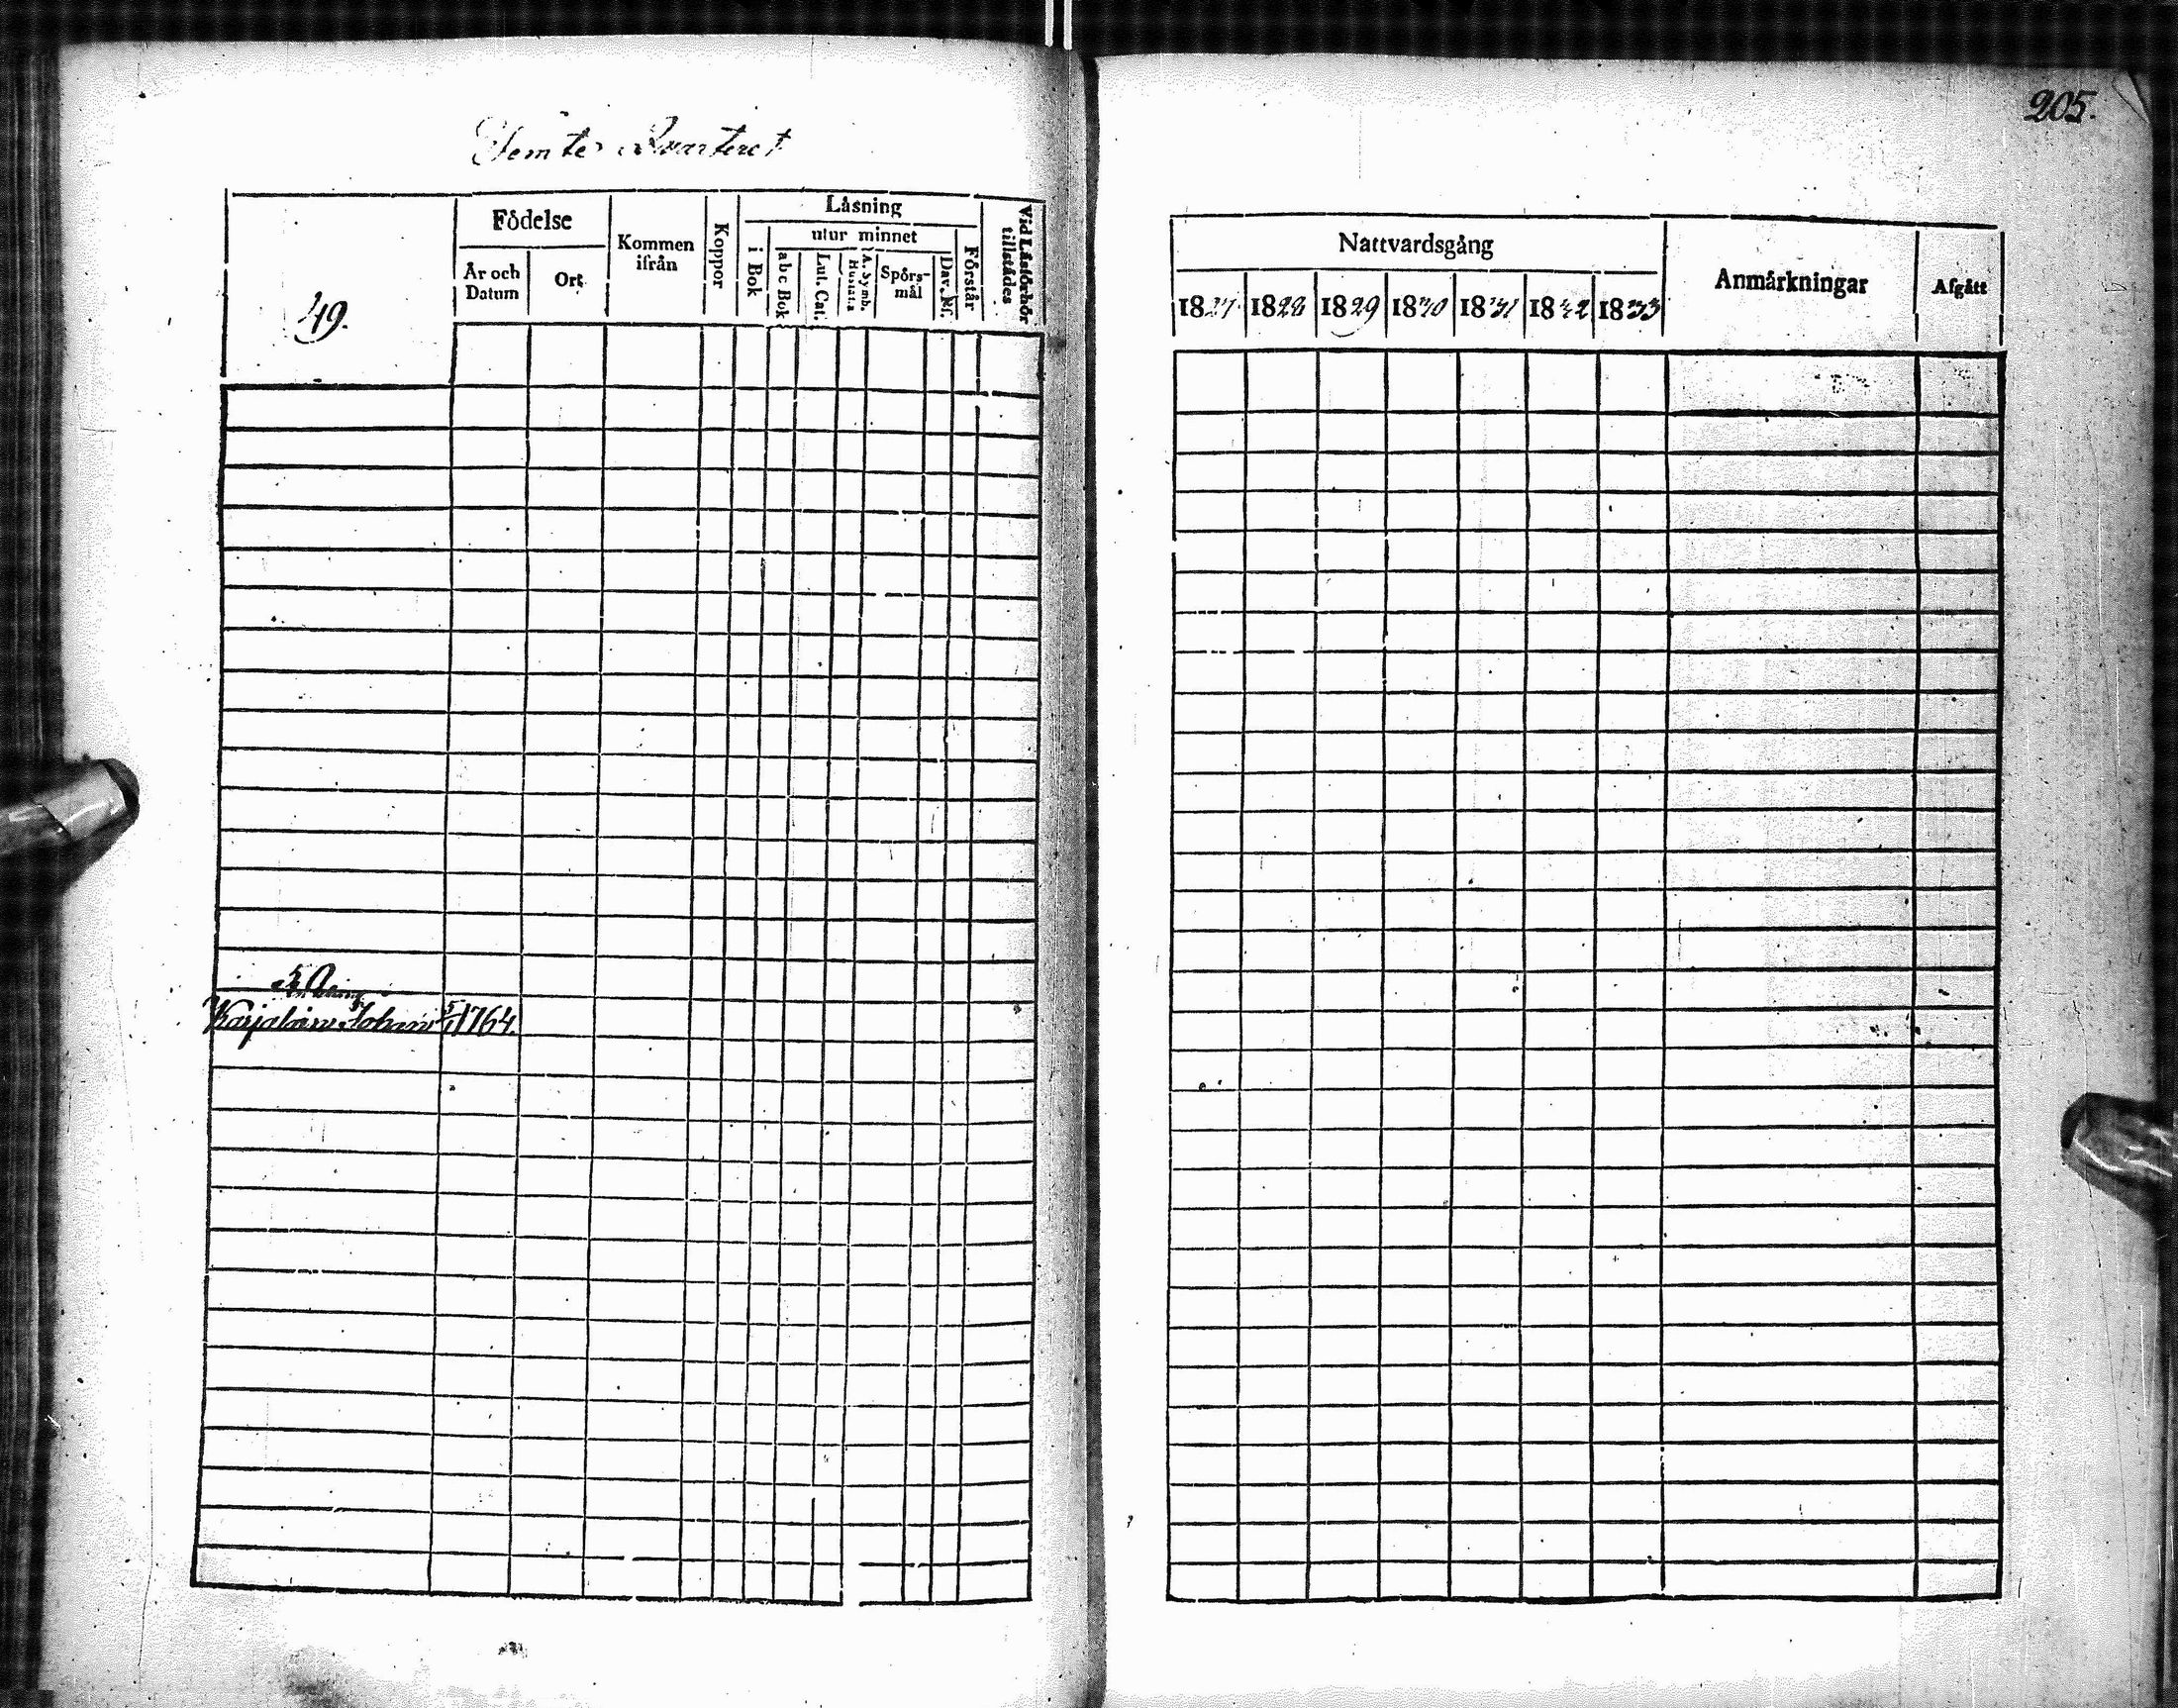 Femte Quarteret
49.
Födelse
År och Datum
Ort
Kommen ifrån
Koppor
Läsning
i Bok
utur minnet
abc Bok
Lut. Cat.
A. Symb. Hustafla
Spörs-mål
Dav. Ps.
Förstår
Vid Läsförhör tillstädes
Karjalain Johan 5/1 1764.
205.
Nattvardsgång
1827 1828 1829 1830 1831 1832 1833
Anmärkningar
Afgått